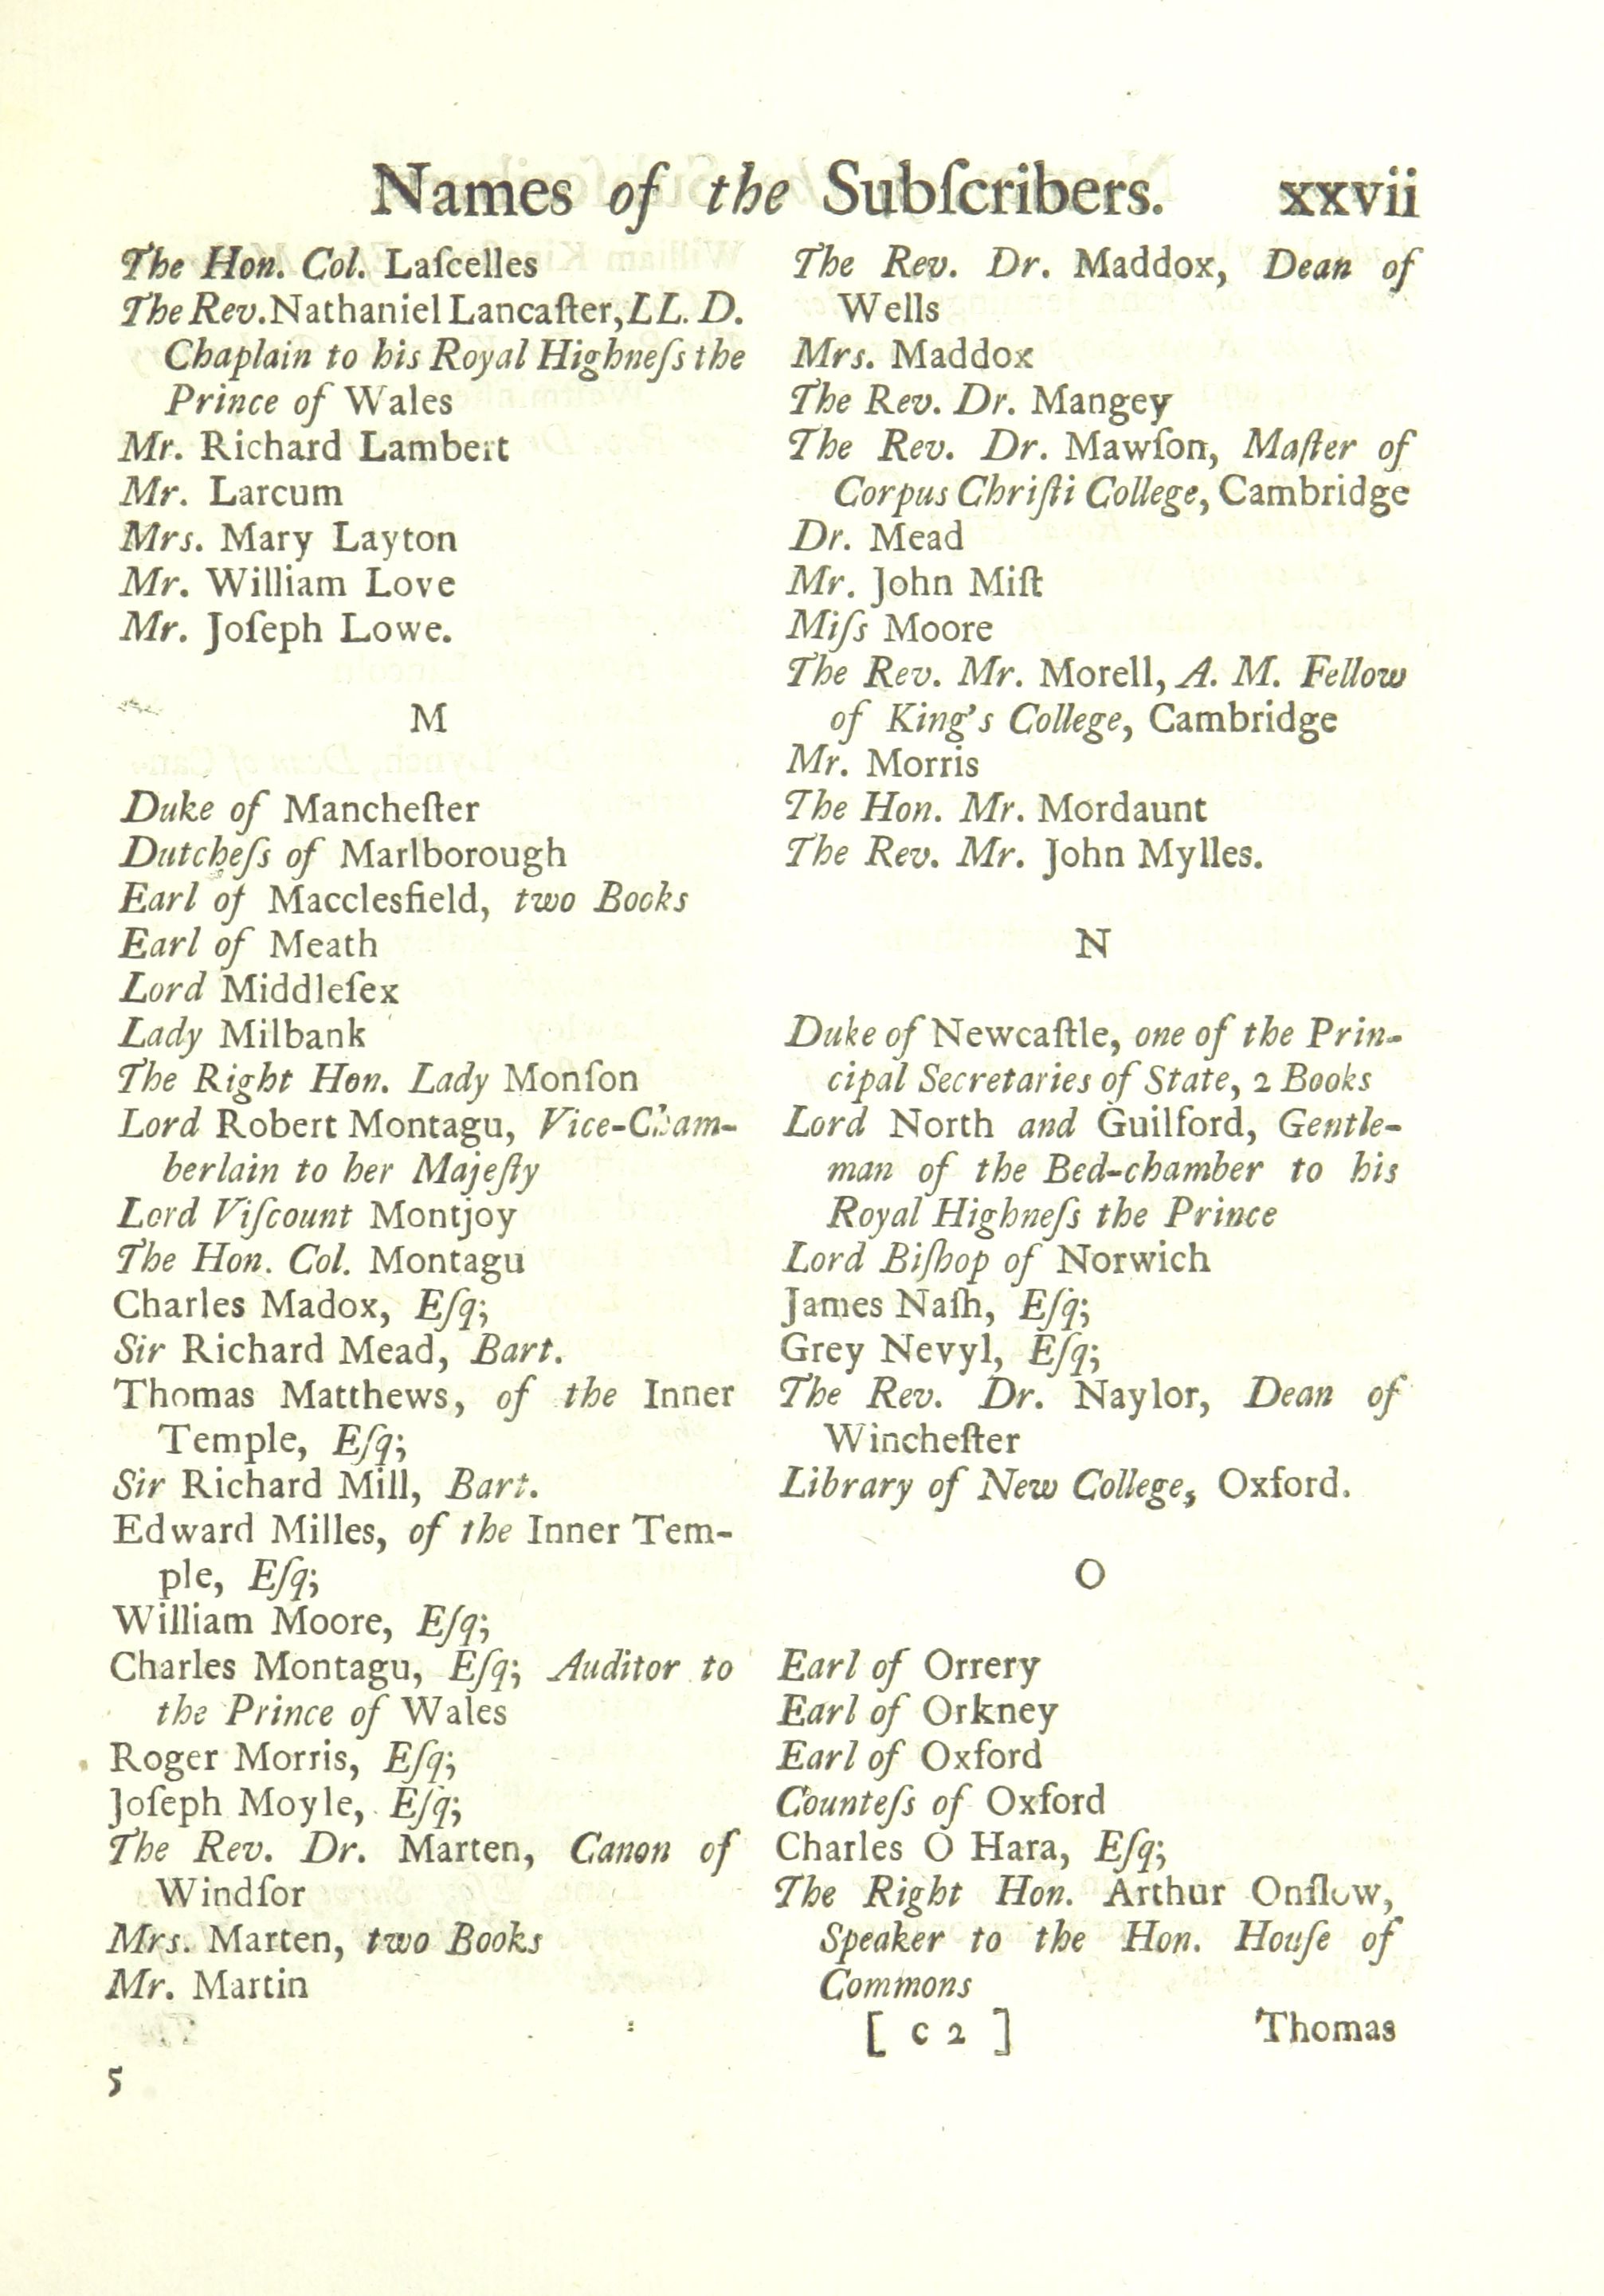 Names of the Subſcribers. xxvii
The Hon. Col. Laſcelles
The Rev. Nathaniel Lancaſter, LL. D.
Chaplain to his Royal Highneſs the
Prince of Wales
Mr. Richard Lambert
Mr. Larcum
Mrs. Mary Layton
Mr. William Love
Mr. Joſeph Lowe.
M
Duke of Mancheſter
Dutcheſs of Marlborough
Earl of Macclesfield, two Books
Earl of Meath
Lord Middleſex
Lady Milbank
The Right Hon. Lady Monſon
Lord Robert Montagu, Vice-Cham-
berlain to her Majeſty
Lord Viſcount Montjoy
The Hon. Col. Montagu
Charles Madox, Eſq;
Sir Richard Mead, Bart.
Thomas Matthews, of the Inner
Temple, Eſq;
Sir Richard Mill, Bart.
Edward Milles, of the Inner Tem-
ple, Eſq;
William Moore, Eſq;
Charles Montagu, Eſq; Auditor to
the Prince of Wales
Roger Morris, Eſq;
Joſeph Moyle, Eſq;
The Rev. Dr. Marten, Canon of
Windſor
Mrs. Marten, two Books
Mr. Martin
The Rev. Dr. Maddox, Dean of
Wells
Mrs. Maddox
The Rev. Dr. Mangey
The Rev. Dr. Mawſon, Maſter of
Corpus Chriſti College, Cambridge
Dr. Mead
Mr. John Miſt
Miſs Moore
The Rev. Mr. Morell, A. M. Fellow
of King's College, Cambridge
Mr. Morris
The Hon. Mr. Mordaunt
The Rev. Mr. John Mylles.
N
Duke of Newcaſtle, one of the Prin-
cipal Secretaries of State, 2 Books
Lord North and Guilford, Gentle-
man of the Bed-chamber to his
Royal Highneſs the Prince
Lord Biſhop of Norwich
James Naſh, Eſq;
Grey Nevyl, Eſq;
The Rev. Dr. Naylor, Dean of
Wincheſter
Library of New College, Oxford.
O
Earl of Orrery
Earl of Orkney
Earl of Oxford
Counteſs of Oxford
Charles O Hara, Eſq;
The Right Hon. Arthur Onſlow,
Speaker to the Hon. Houſe of
Commons
[ c 2 ] Thomas
5